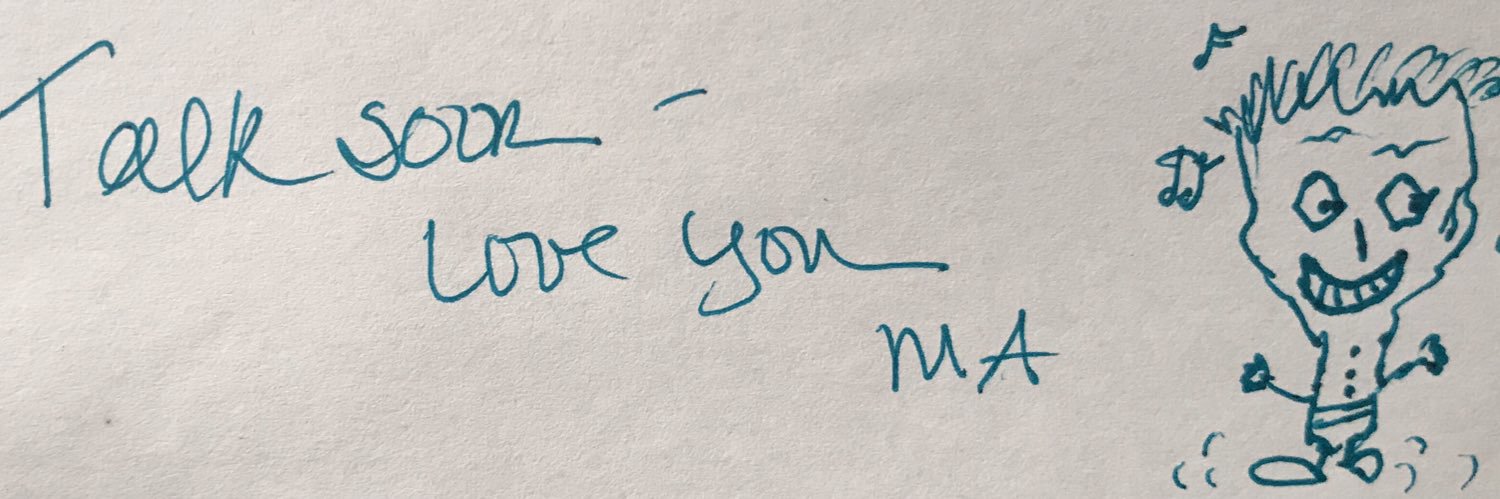 Talk soon -
Love you
MA